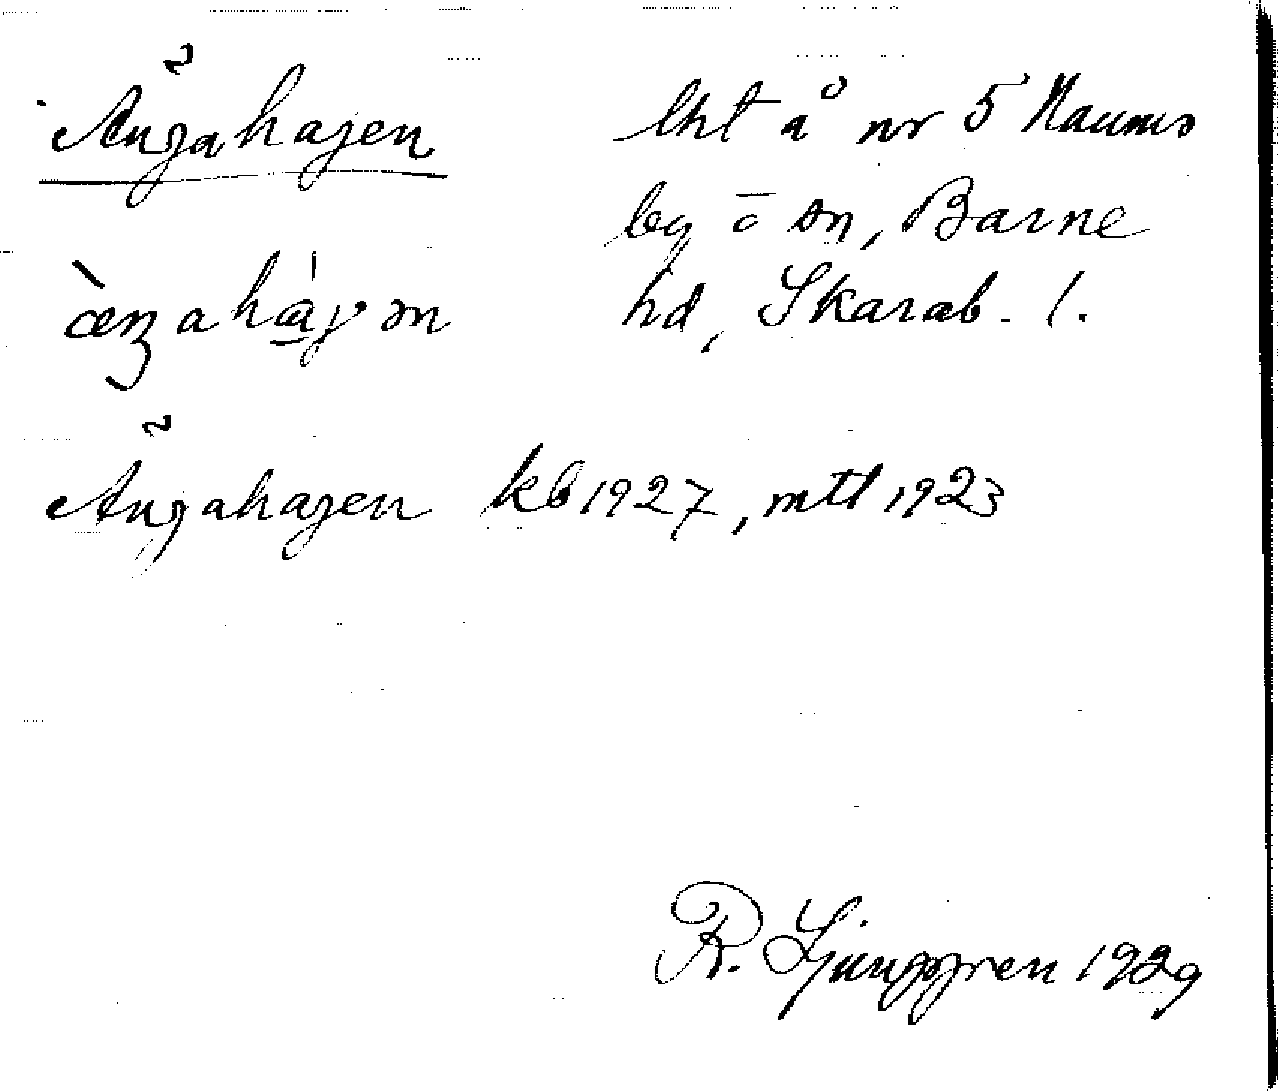 Ängahagen lht å nr 5 Naums
by o sn, Barne
hd, Skarab. l.
Ängahagen kb 1927, mtl 1923
R. Ljunggren 1929